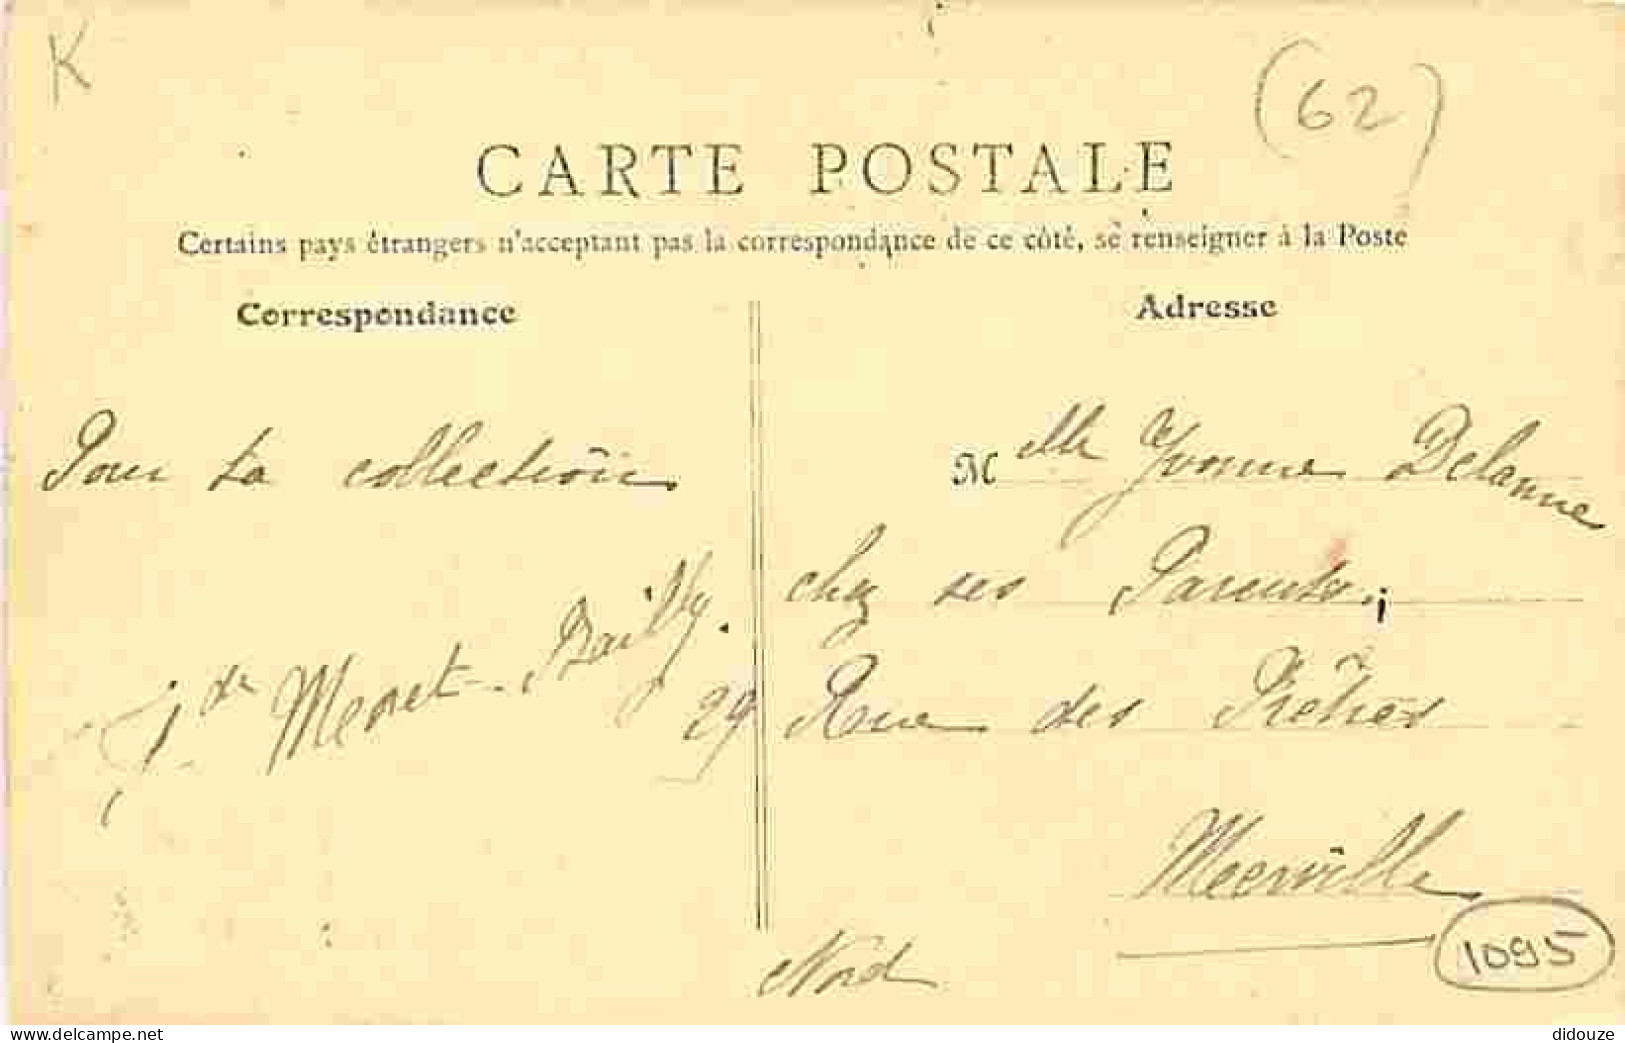 K
(62)
CARTE POSTALE
Certains pays étrangers n'acceptant pas la correspondance de ce côté, se renseigner à la Poste
Correspondance
Adresse
Pour ta collection
Bailly.
Melle Yvonne Delanne
chez ses Parents
29 Rue des Prêtres
Meerville
Nord
1095
www.delcampe.net
didouze